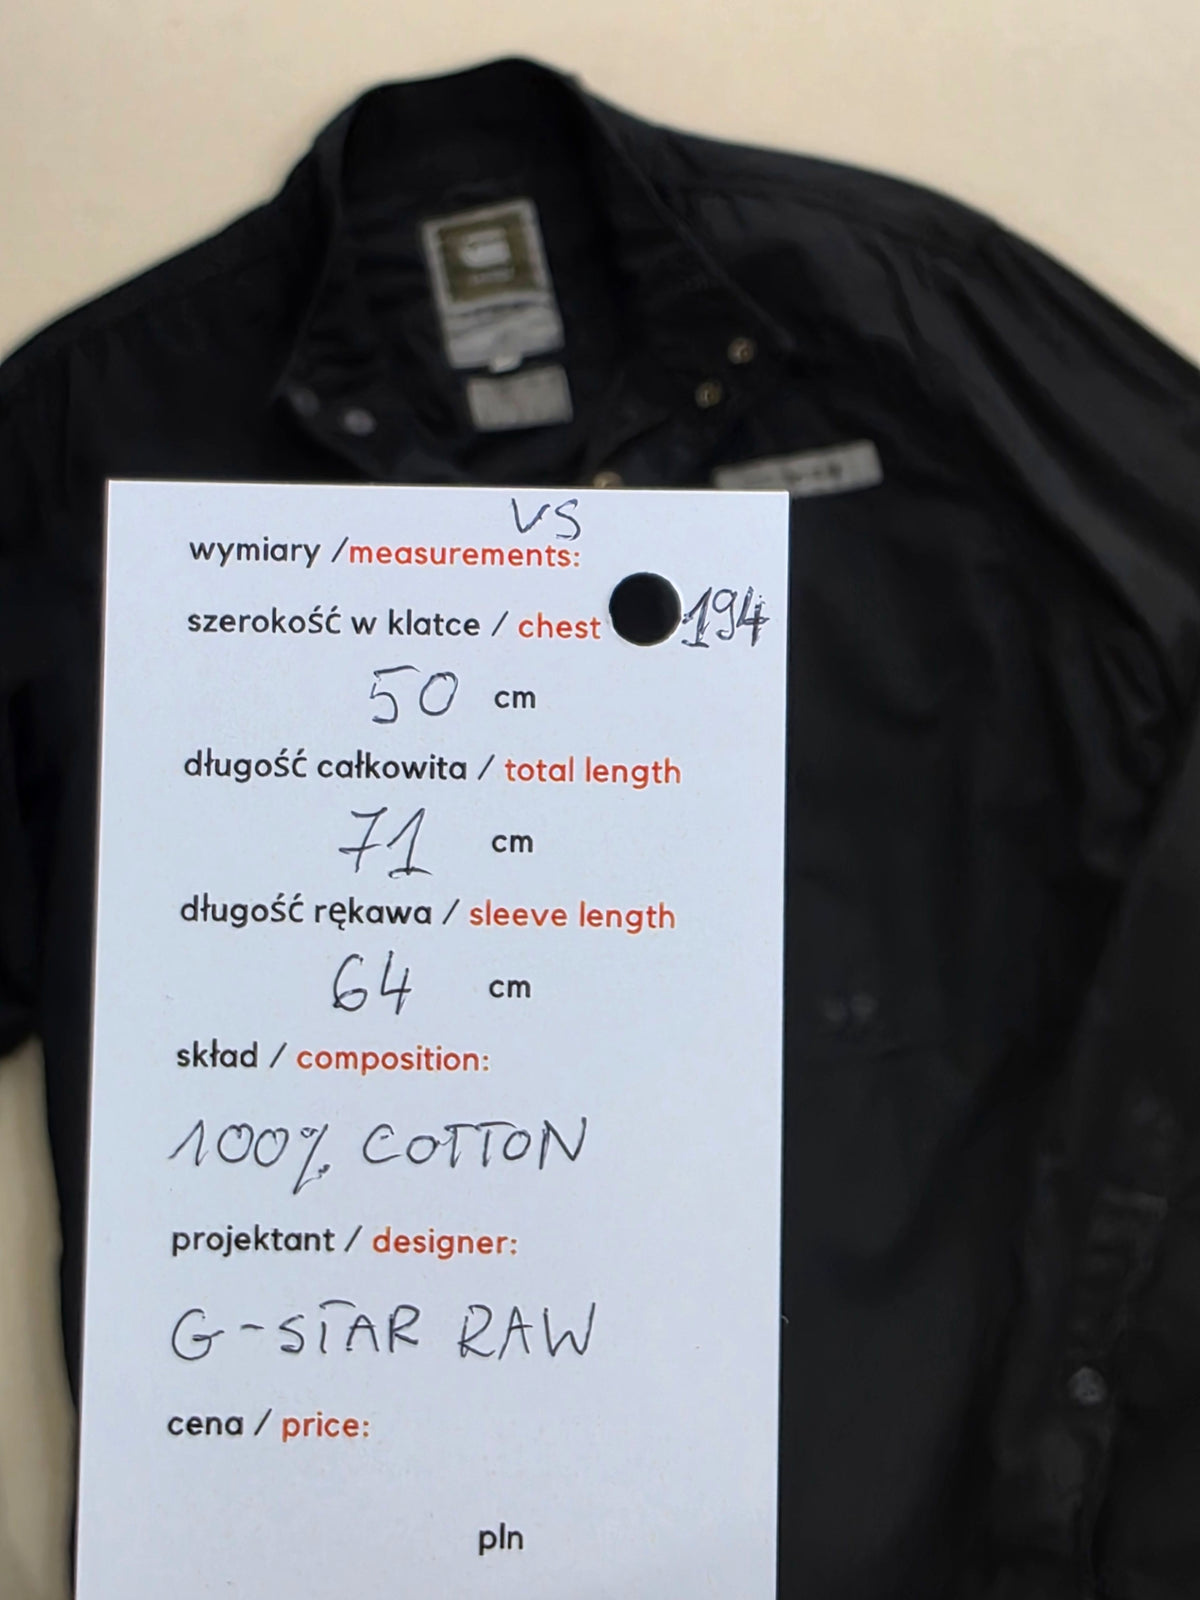 VS
wymiary /measurements:
szerokość w klatce / chest 194
50 cm
długość całkowita / total length
71 cm
długość rękawa / sleeve length
64 cm
skład / composition:
100% COTTON
projektant / designer:
G-STAR RAW
cena / price:
pln